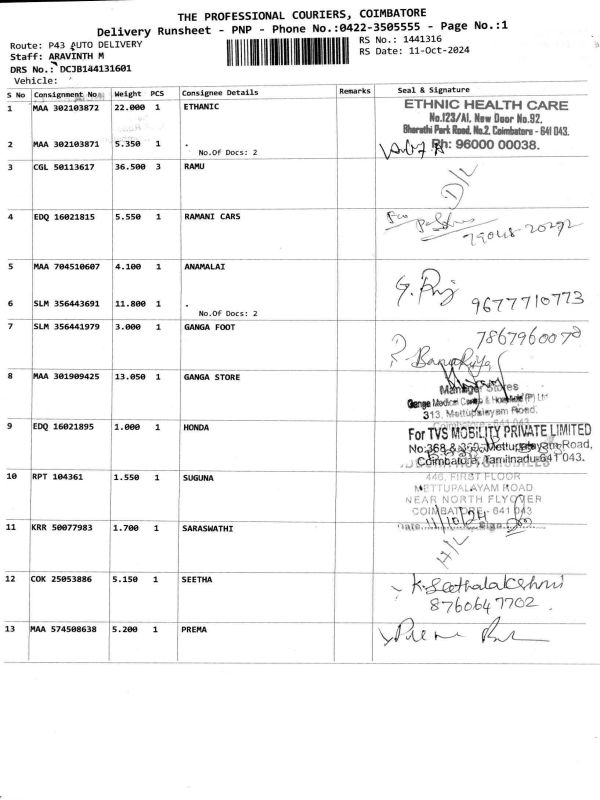 THE PROFESSIONAL COURIERS, COIMBATORE
Delivery Runsheet - PNP - Phone No.:0422-3505555 - Page No.:1
Route: P43 AUTO DELIVERY
RS No.: 1441316
Staff: ARAVINTH M
RS Date: 11-Oct-2024
DRS No.: DCJB144131601
Vehicle:
S No Consignment No Weight PCS Consignee Details Remarks Seal & Signature
1 MAA 302103872 22.000 1 ETHANIC
ETHNIC HEALTH CARE
No.123/A1, New Door No.92,
Bharathi Park Road, No.2, Coimbatore - 641 043.
Ph: 96000 00038.
2 MAA 302103871 5.350 1 .
No.Of Docs: 2
3 CGL 50113617 36.500 3 RAMU
D/L
4 EDQ 16021815 5.550 1 RAMANI CARS
79048-20292
5 MAA 704510607 4.100 1 ANAMALAI
9677710773
6 SLM 356443691 11.800 1 .
No.Of Docs: 2
7 SLM 356441979 3.000 1 GANGA FOOT
7867960070
8 MAA 301909425 13.050 1 GANGA STORE
Manager Stores
313, Mettupalayam Road.
9 EDQ 16021895 1.000 1 HONDA
For TVS MOBILITY PRIVATE LIMITED
No:368 & 369, Mettupalayam Road,
Coimbatore, Tamilnadu-641 043.
10 RPT 104361 1.550 1 SUGUNA
446, FIRST FLOOR
METTUPALAYAM ROAD
NEAR NORTH FLYOVER
COIMBATORE - 641 043
Date 11/10/24 Sign
11 KRR 50077983 1.700 1 SARASWATHI
H/L
12 COK 25053886 5.150 1 SEETHA
K. Seethalakshmi
8760647702
13 MAA 574508638 5.200 1 PREMA
Prema